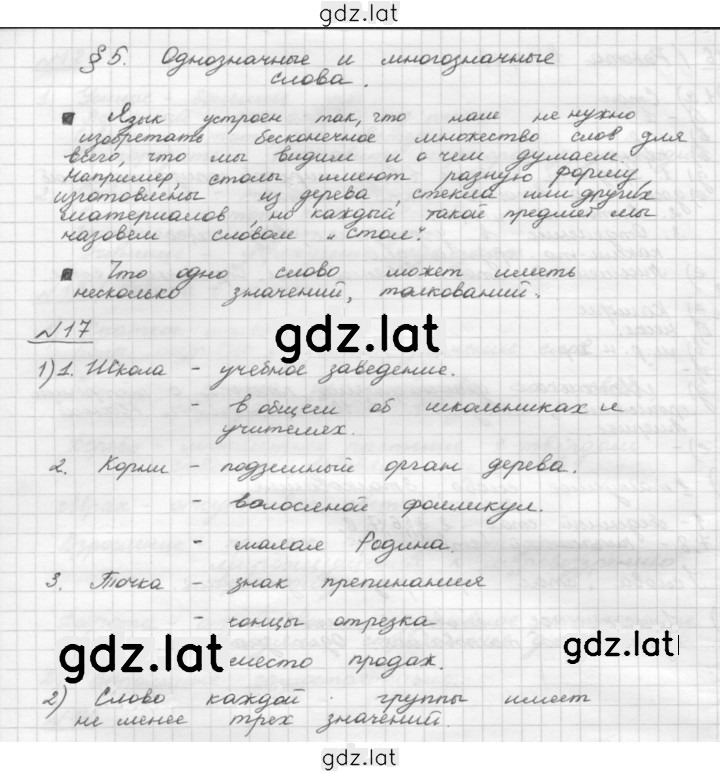 gdz.lat
§ 5. Однозначные и многозначные
слова.
Язык устроен так, что нам не нужно
изобретать бесконечное множество слов для
всего, что мы видим и о чем думаем.
Например, столы имеют разную форму,
изготовлены из дерева, стекла или других
материалов, но каждый такой предмет мы
назовем словом „стол".
Что одно слово может иметь
несколько значений, толкований.
№17
gdz.lat
1) 1. Школа - учебное заведение.
- в общем об школьниках и
учителях.
2. Корни - подземный орган дерева.
- волосяной фолликул.
- малая Родина.
3. Точка - знак препинания
- концы отрезка
gdz.lat
gdz.lat
место продаж.
2) Слово каждой группы имеет
не менее трех значений.
gdz.lat